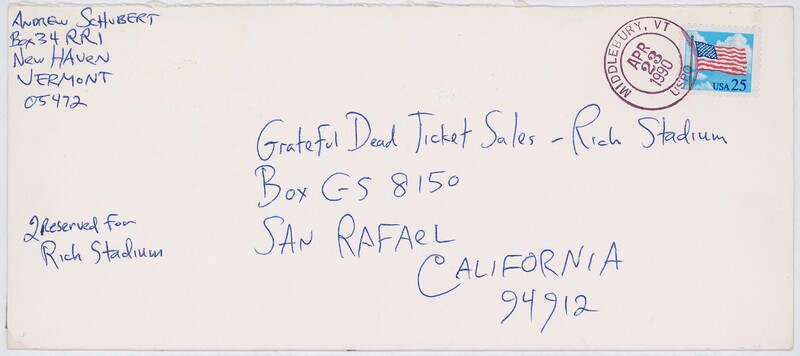 ANDREW SCHUBERT
Box 34 RR1
NEW HAVEN
VERMONT
05472
MIDDLEBURY, VT
APR
23
1990
USPO
USA 25
Grateful Dead Ticket Sales - Rich Stadium
Box CS 8150
SAN RAFAEL
CALIFORNIA
94912
2 Reserved for
Rich Stadium